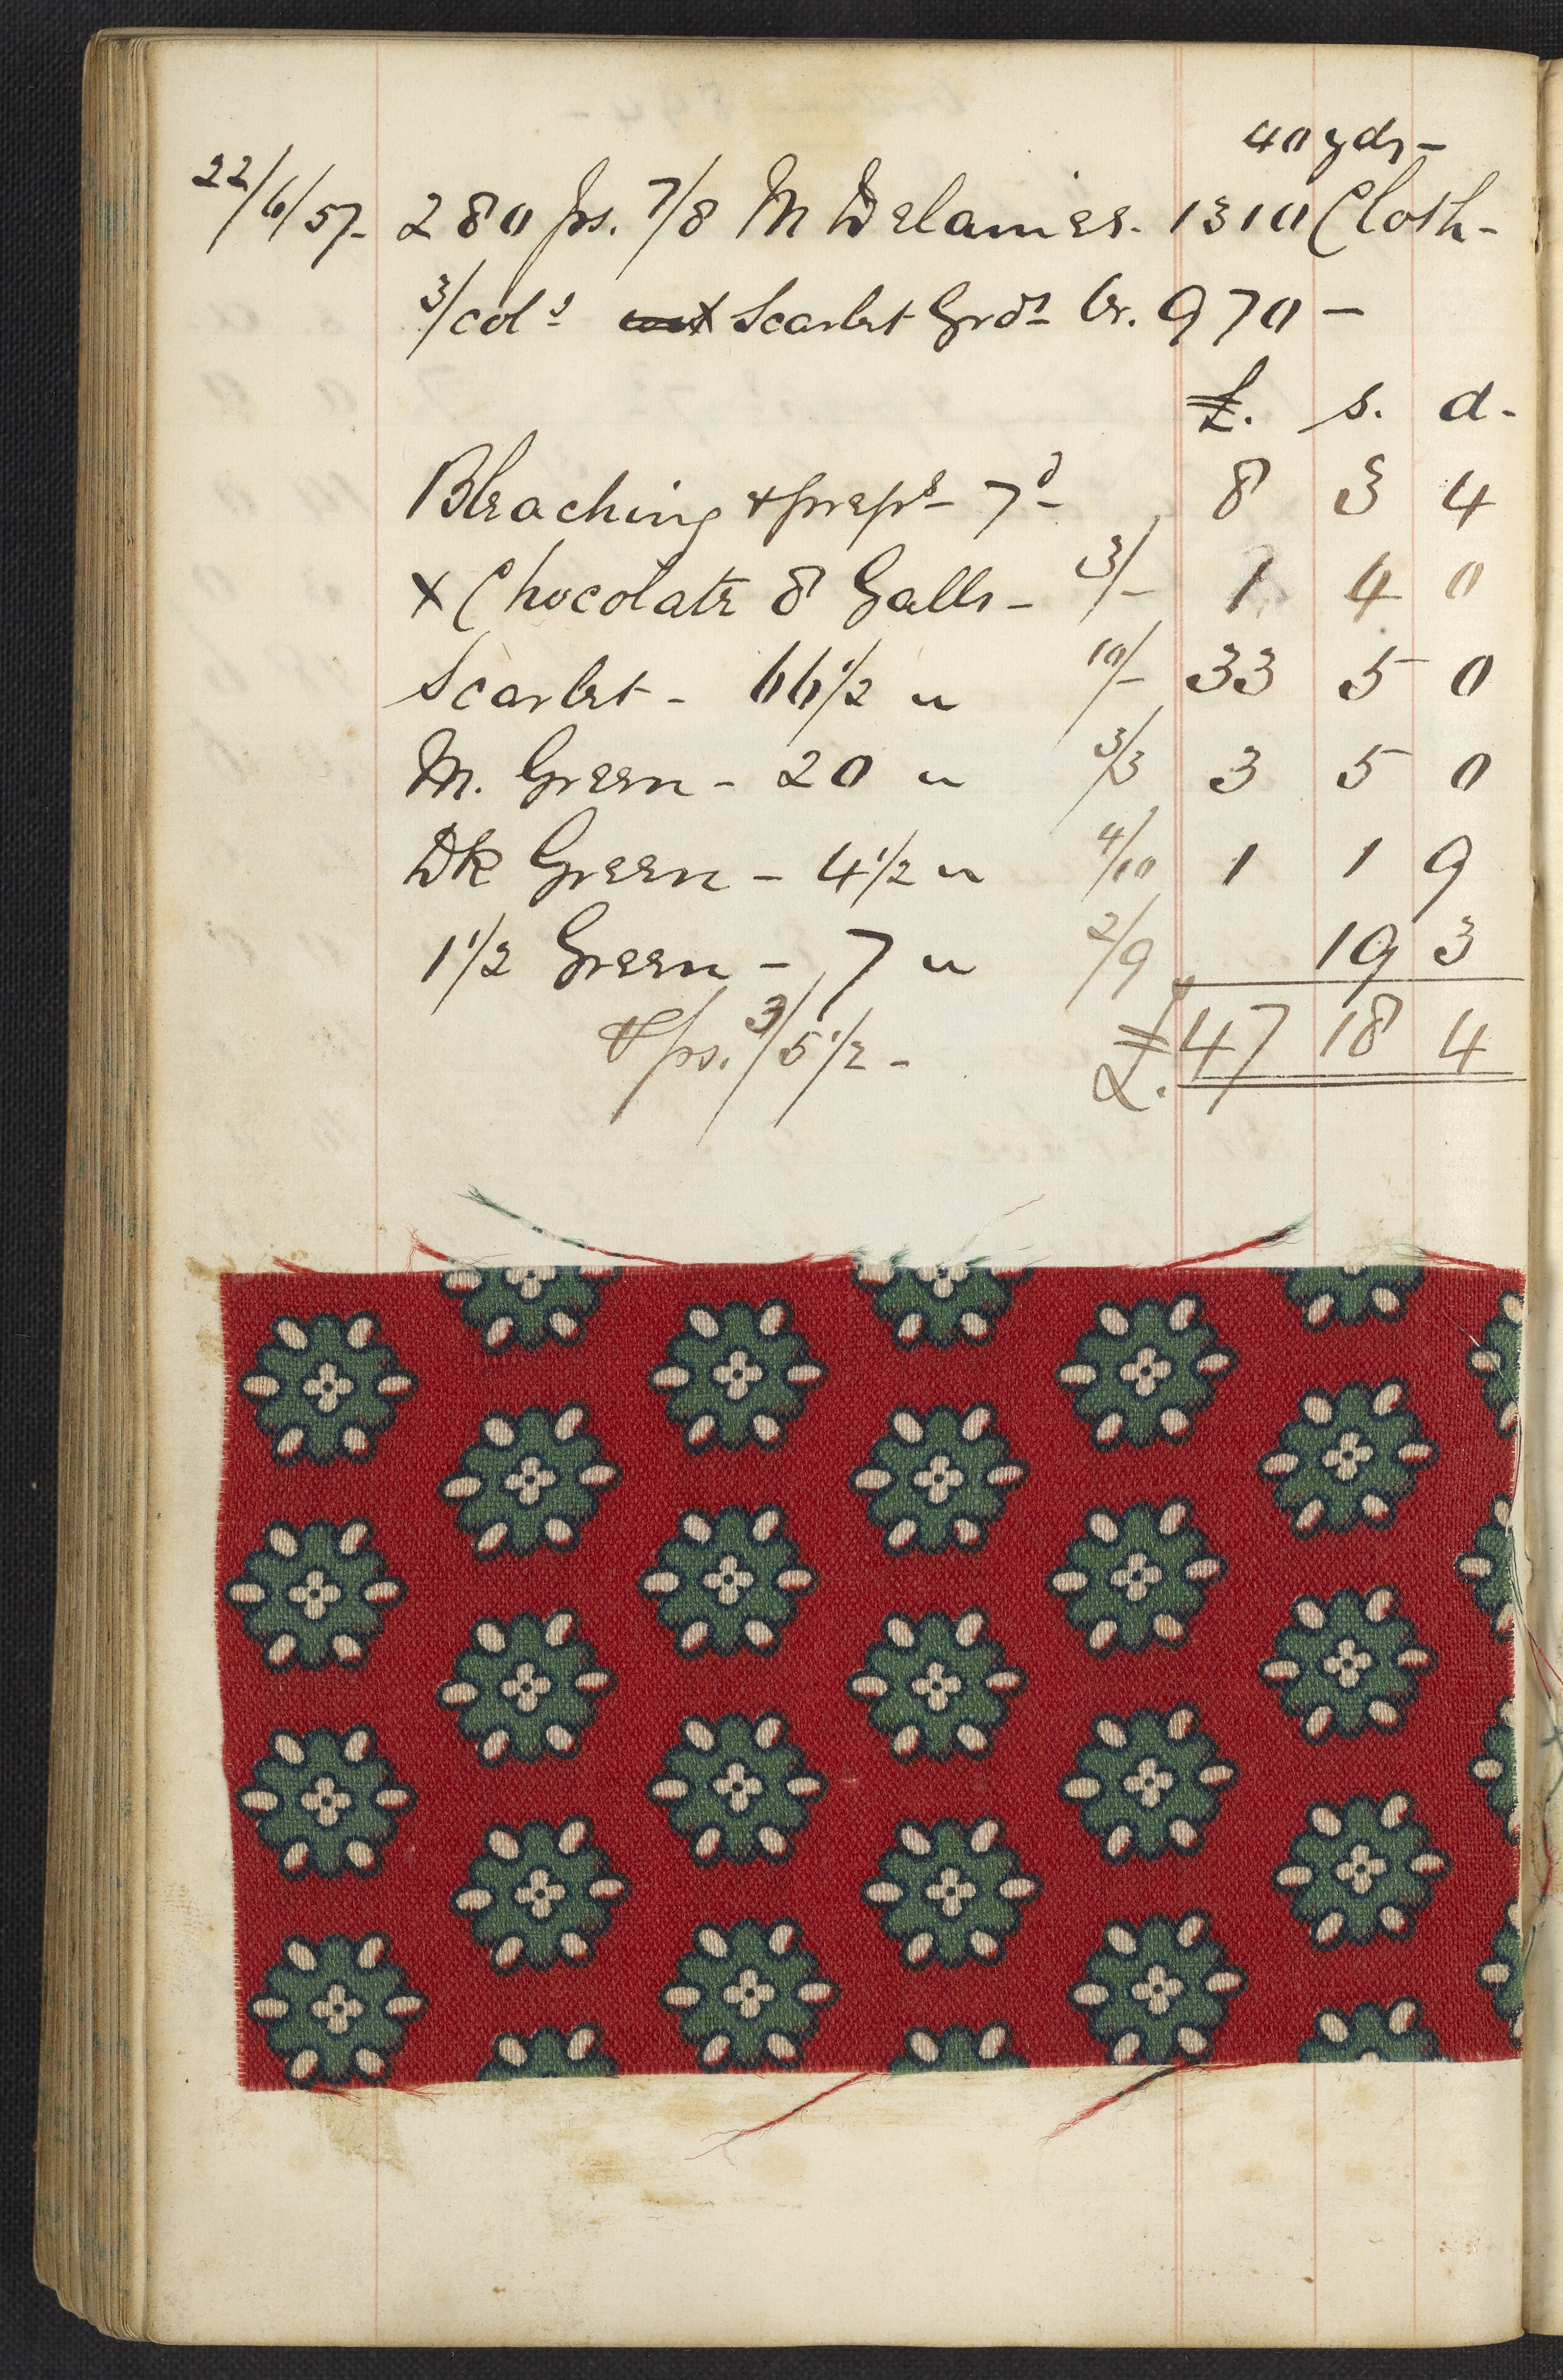 40 yds -
22/6/57 - 280 ps. 7/8 M Delaines. 1310 Cloth -
3/cols Scarlet Grds Cr. 970 -
£. s. d.
Bleaching & prepg 7d 8 3 4
x Chocolate 8 Galls - 3/- 1 4 0
Scarlet - 66 1/2 " 10/- 33 5 0
M. Green - 20 " 3/3 3 5 0
Dk Green - 4 1/2 " 4/10 1 1 9
1 1/2 Green - 7 " 2/9 19 3
ps. 3/5 1/2 - £. 47 18 4